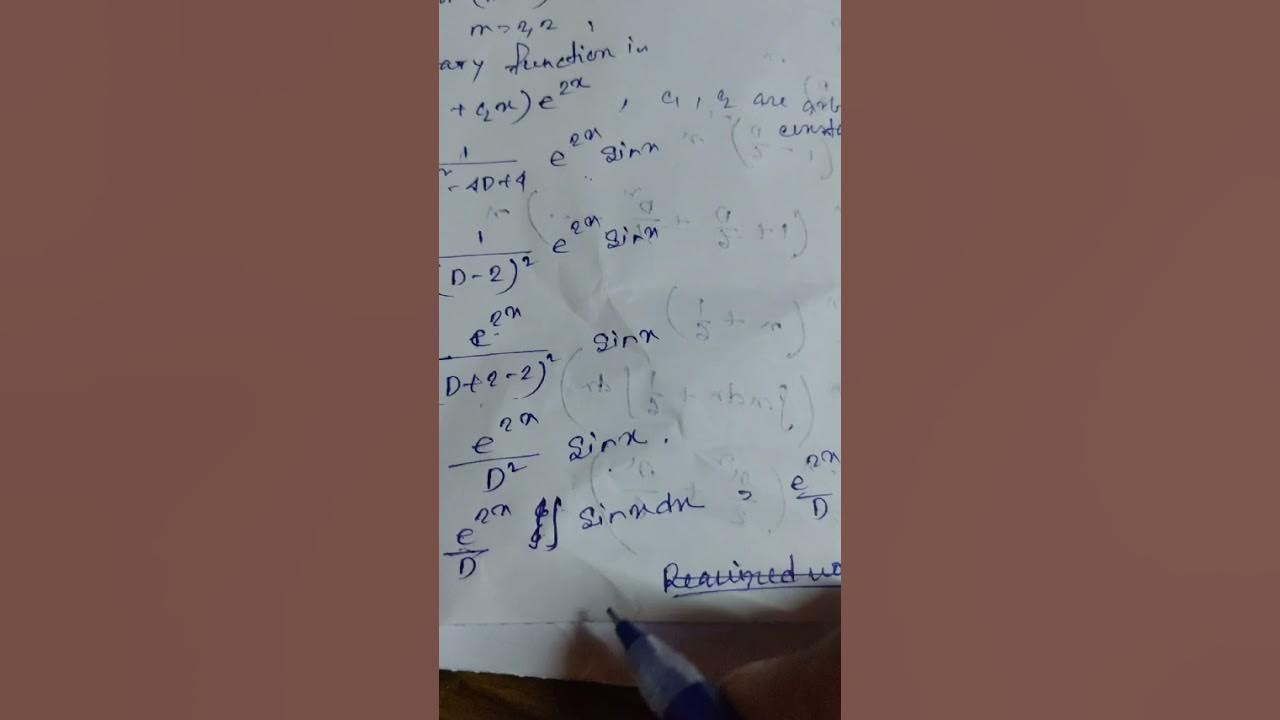 m = 2, 2 ,
ary function is
+ c₂x) e^{2x} , c₁, c₂ are arb
consta
1/(² - 4D+4) e^{2x} sinx
1/(D-2)² e^{2x} sinx
e^{2x}/(D+2-2)² sinx
e^{2x}/D² sinx .
e^{2x}/D ∫ sinx dx = e^{2x}/D
Required